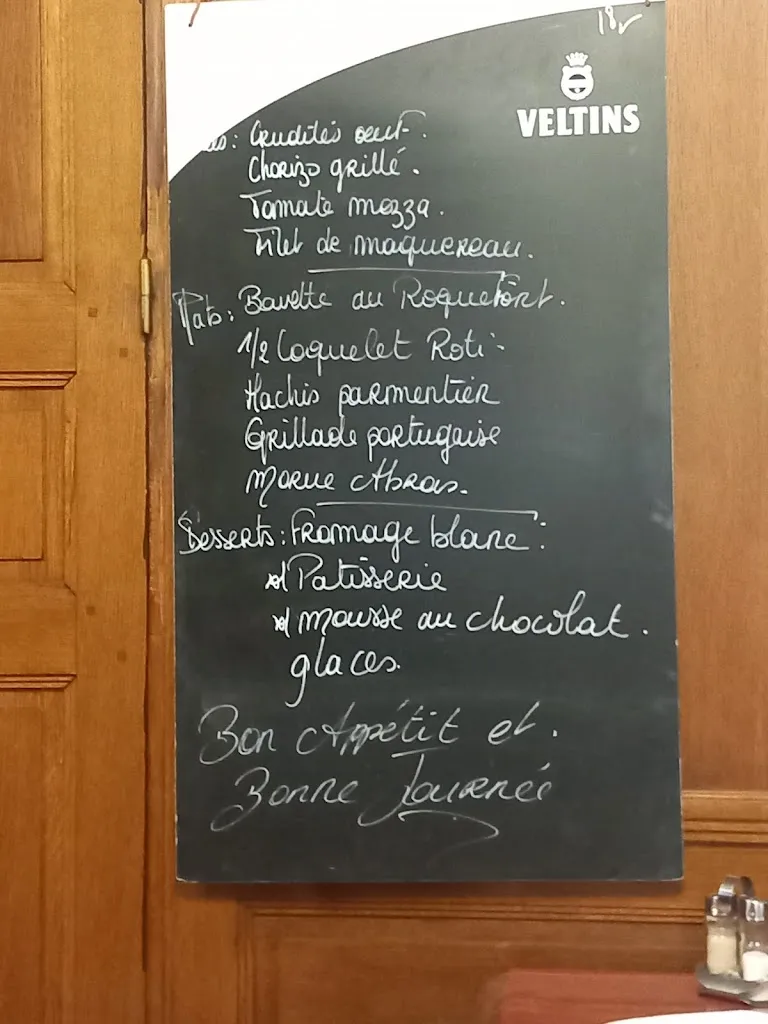 18
VELTINS
Crudités oeuf.
Chorizo grillé.
Tomate mozza.
Filet de maquereau.
Plats: Bavette au Roquefort.
1/2 Coquelet Roti
Hachis parmentier
Grillade portugaise
Morue Abras.
Desserts: Fromage blanc:
Patisserie
mousse au chocolat.
glaces.
Bon Appétit et.
Bonne Journée